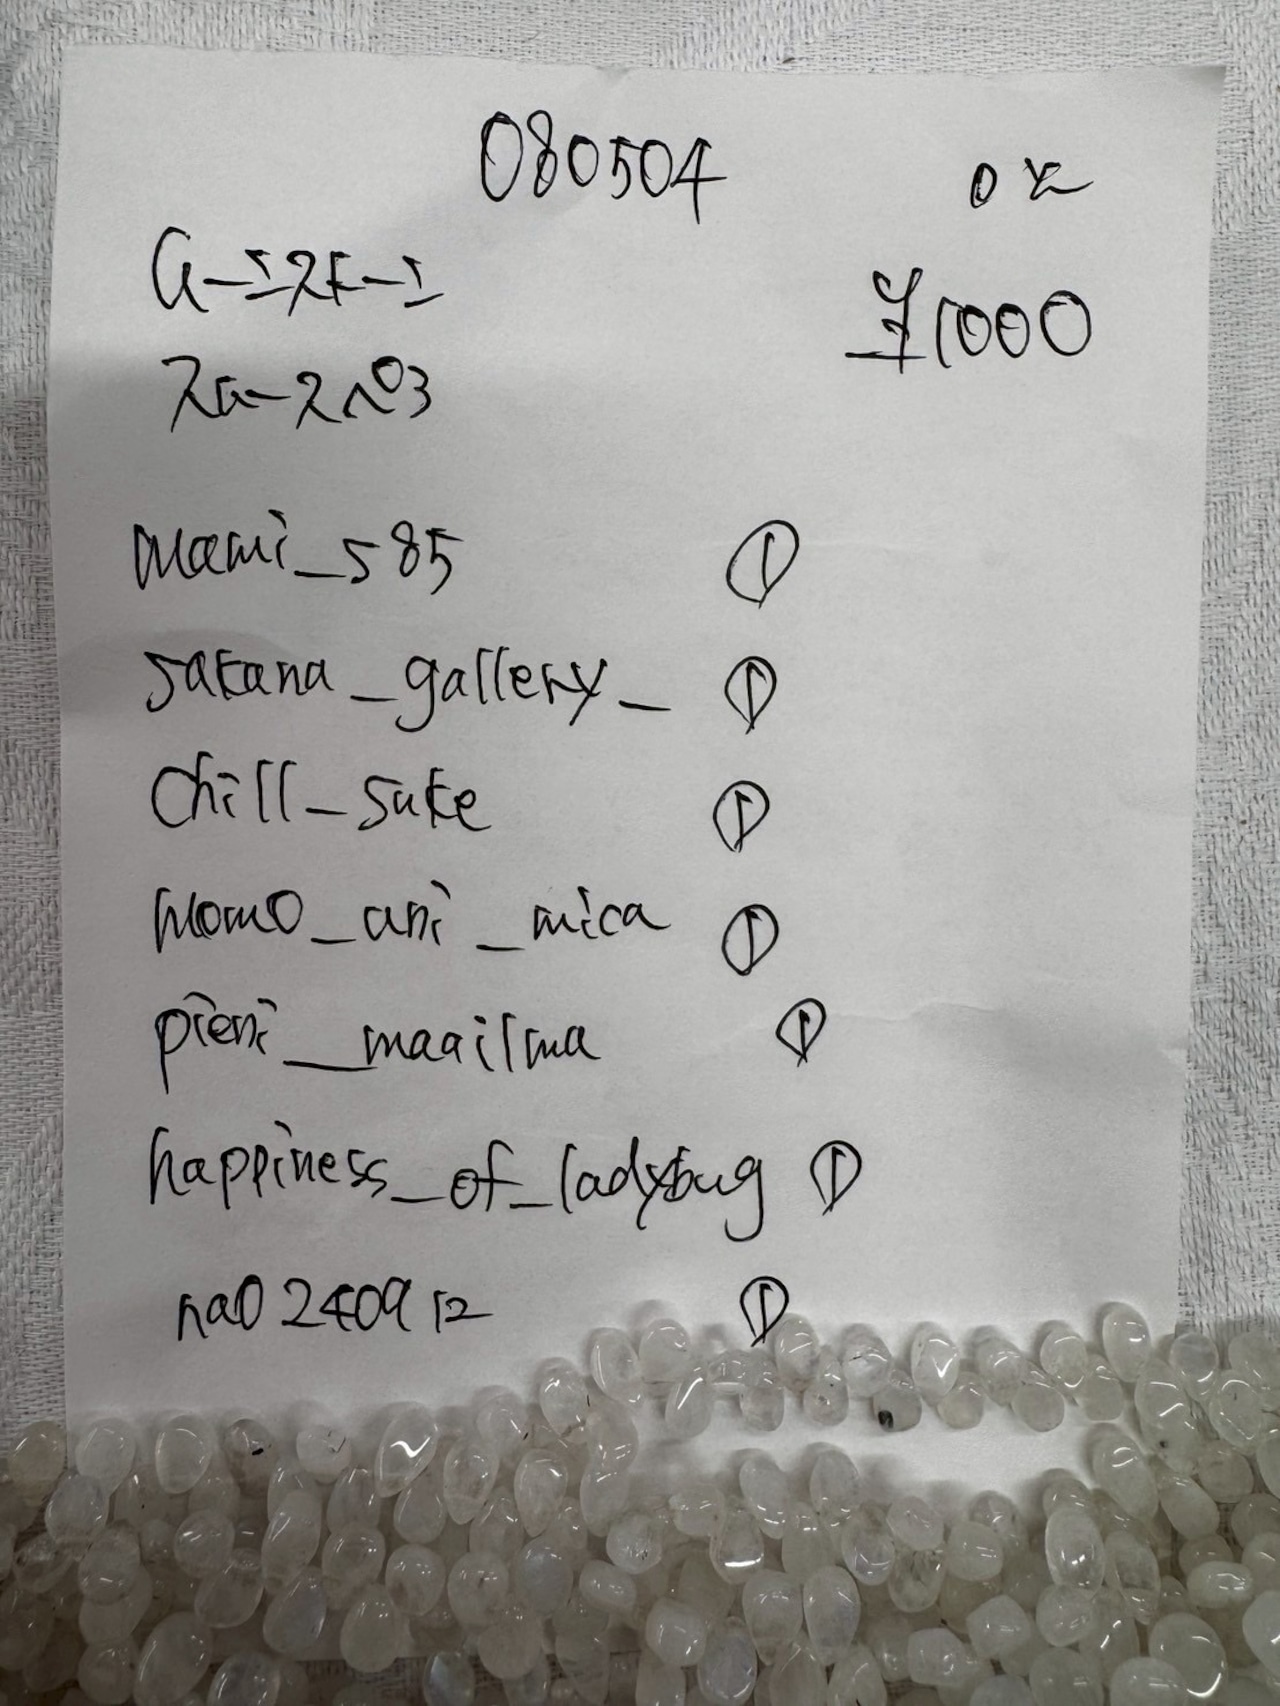 080504
¥1000
mami_s85
sakana_gallery_ ①
chill_sake ①
momo_ani_mica ①
pieni__maailma ①
happiness_of_ladybug ①
na0240912 ①